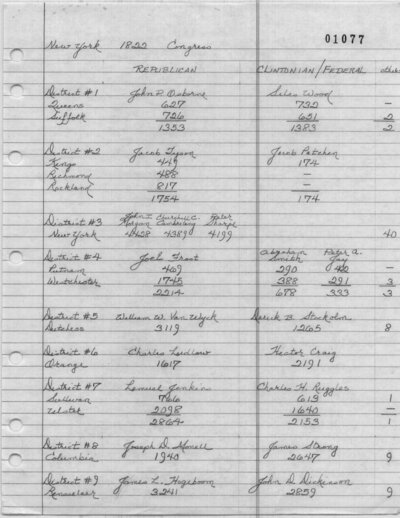 01077
New York 1822 Congress
REPUBLICAN CLINTONIAN/FEDERAL others
District #1 John P. Osborne Silas Wood
Queens 627 732 —
Suffolk 726 651 2
1353 1383 2
District #2 Jacob Tyson Jacob Patchen
Kings 449 174
Richmond 488 —
Rockland 817 —
1754 174
District #3 John I. Morgan Churchill C. Cambreleng Peter Sharpe
New York 4428 4389 4199 40
District #4 Joel Frost Abraham Smith Peter A. Jay
Putnam 469 290 42 —
Westchester 1745 388 291 3
2214 678 333 3
District #5 William W. Van Wyck Derick B. Stockholm
Dutchess 3119 1265 8
District #6 Charles Ludlow Hector Craig
Orange 1617 2191
District #7 Lemuel Jenkins Charles H. Ruggles
Sullivan 766 513 1
Ulster 2098 1640 —
2864 2153 1
District #8 Joseph D. Monell James Strong
Columbia 1940 2647 9
District #9 James L. Hogeboom John D. Dickinson
Rensselaer 3241 2859 9